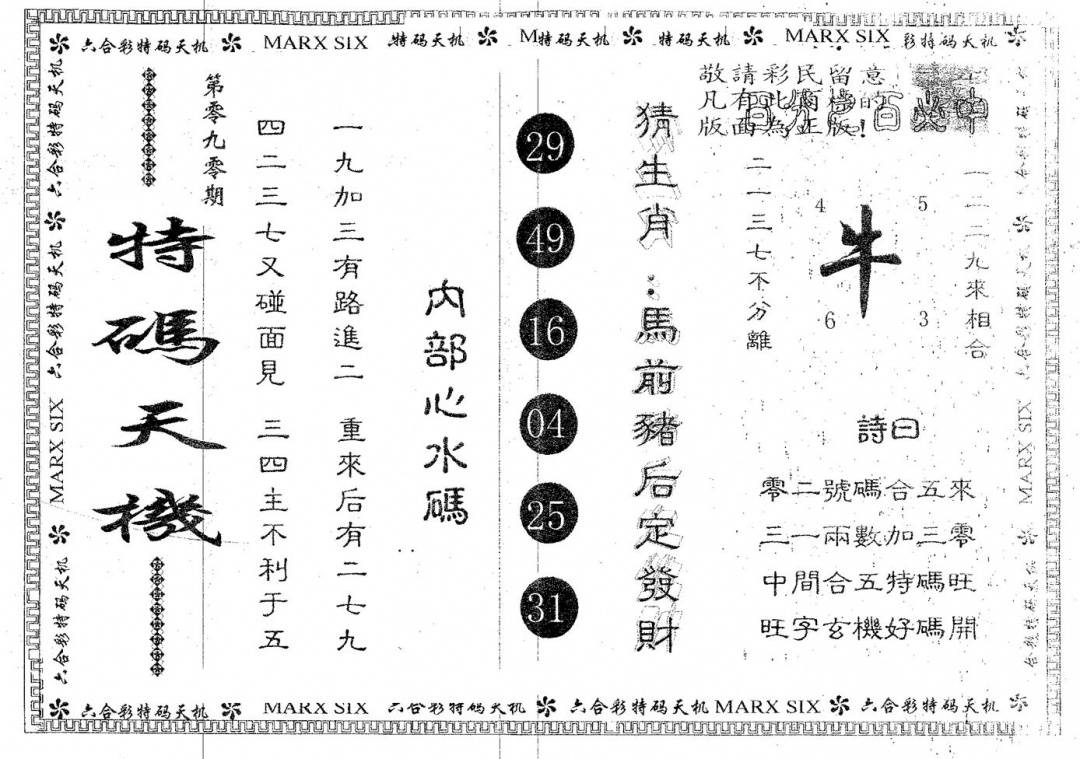 六合彩特码天机 MARX SIX 特码天机 M特码天机 特码天机 MARX SIX 彩特码天机
敬請彩民留意
凡有此圖樣的
版面為正版!
百分百必中
一二二九來相合
4 5
牛
6 3
二一三七不分離
詩曰
零二號碼合五來
三一兩數加三零
中間合五特碼旺
旺字玄機好碼開
猜生肖:馬前豬后定發財
29
49
16
04
25
31
内部心水碼
一九加三有路進二 重來后有二七九
四二三七又碰面見 三四主不利于五
第零九零期
特碼天機
六合彩特码天机 六合彩特码天机 MARX SIX 六合彩特码天机
六合彩特码天机 六合彩特码天机 MARX SIX 合彩特码天机
六合彩特码天机 MARX SIX 六合彩特码天机 六合彩特码天机 MARX SIX 六合彩特码天机